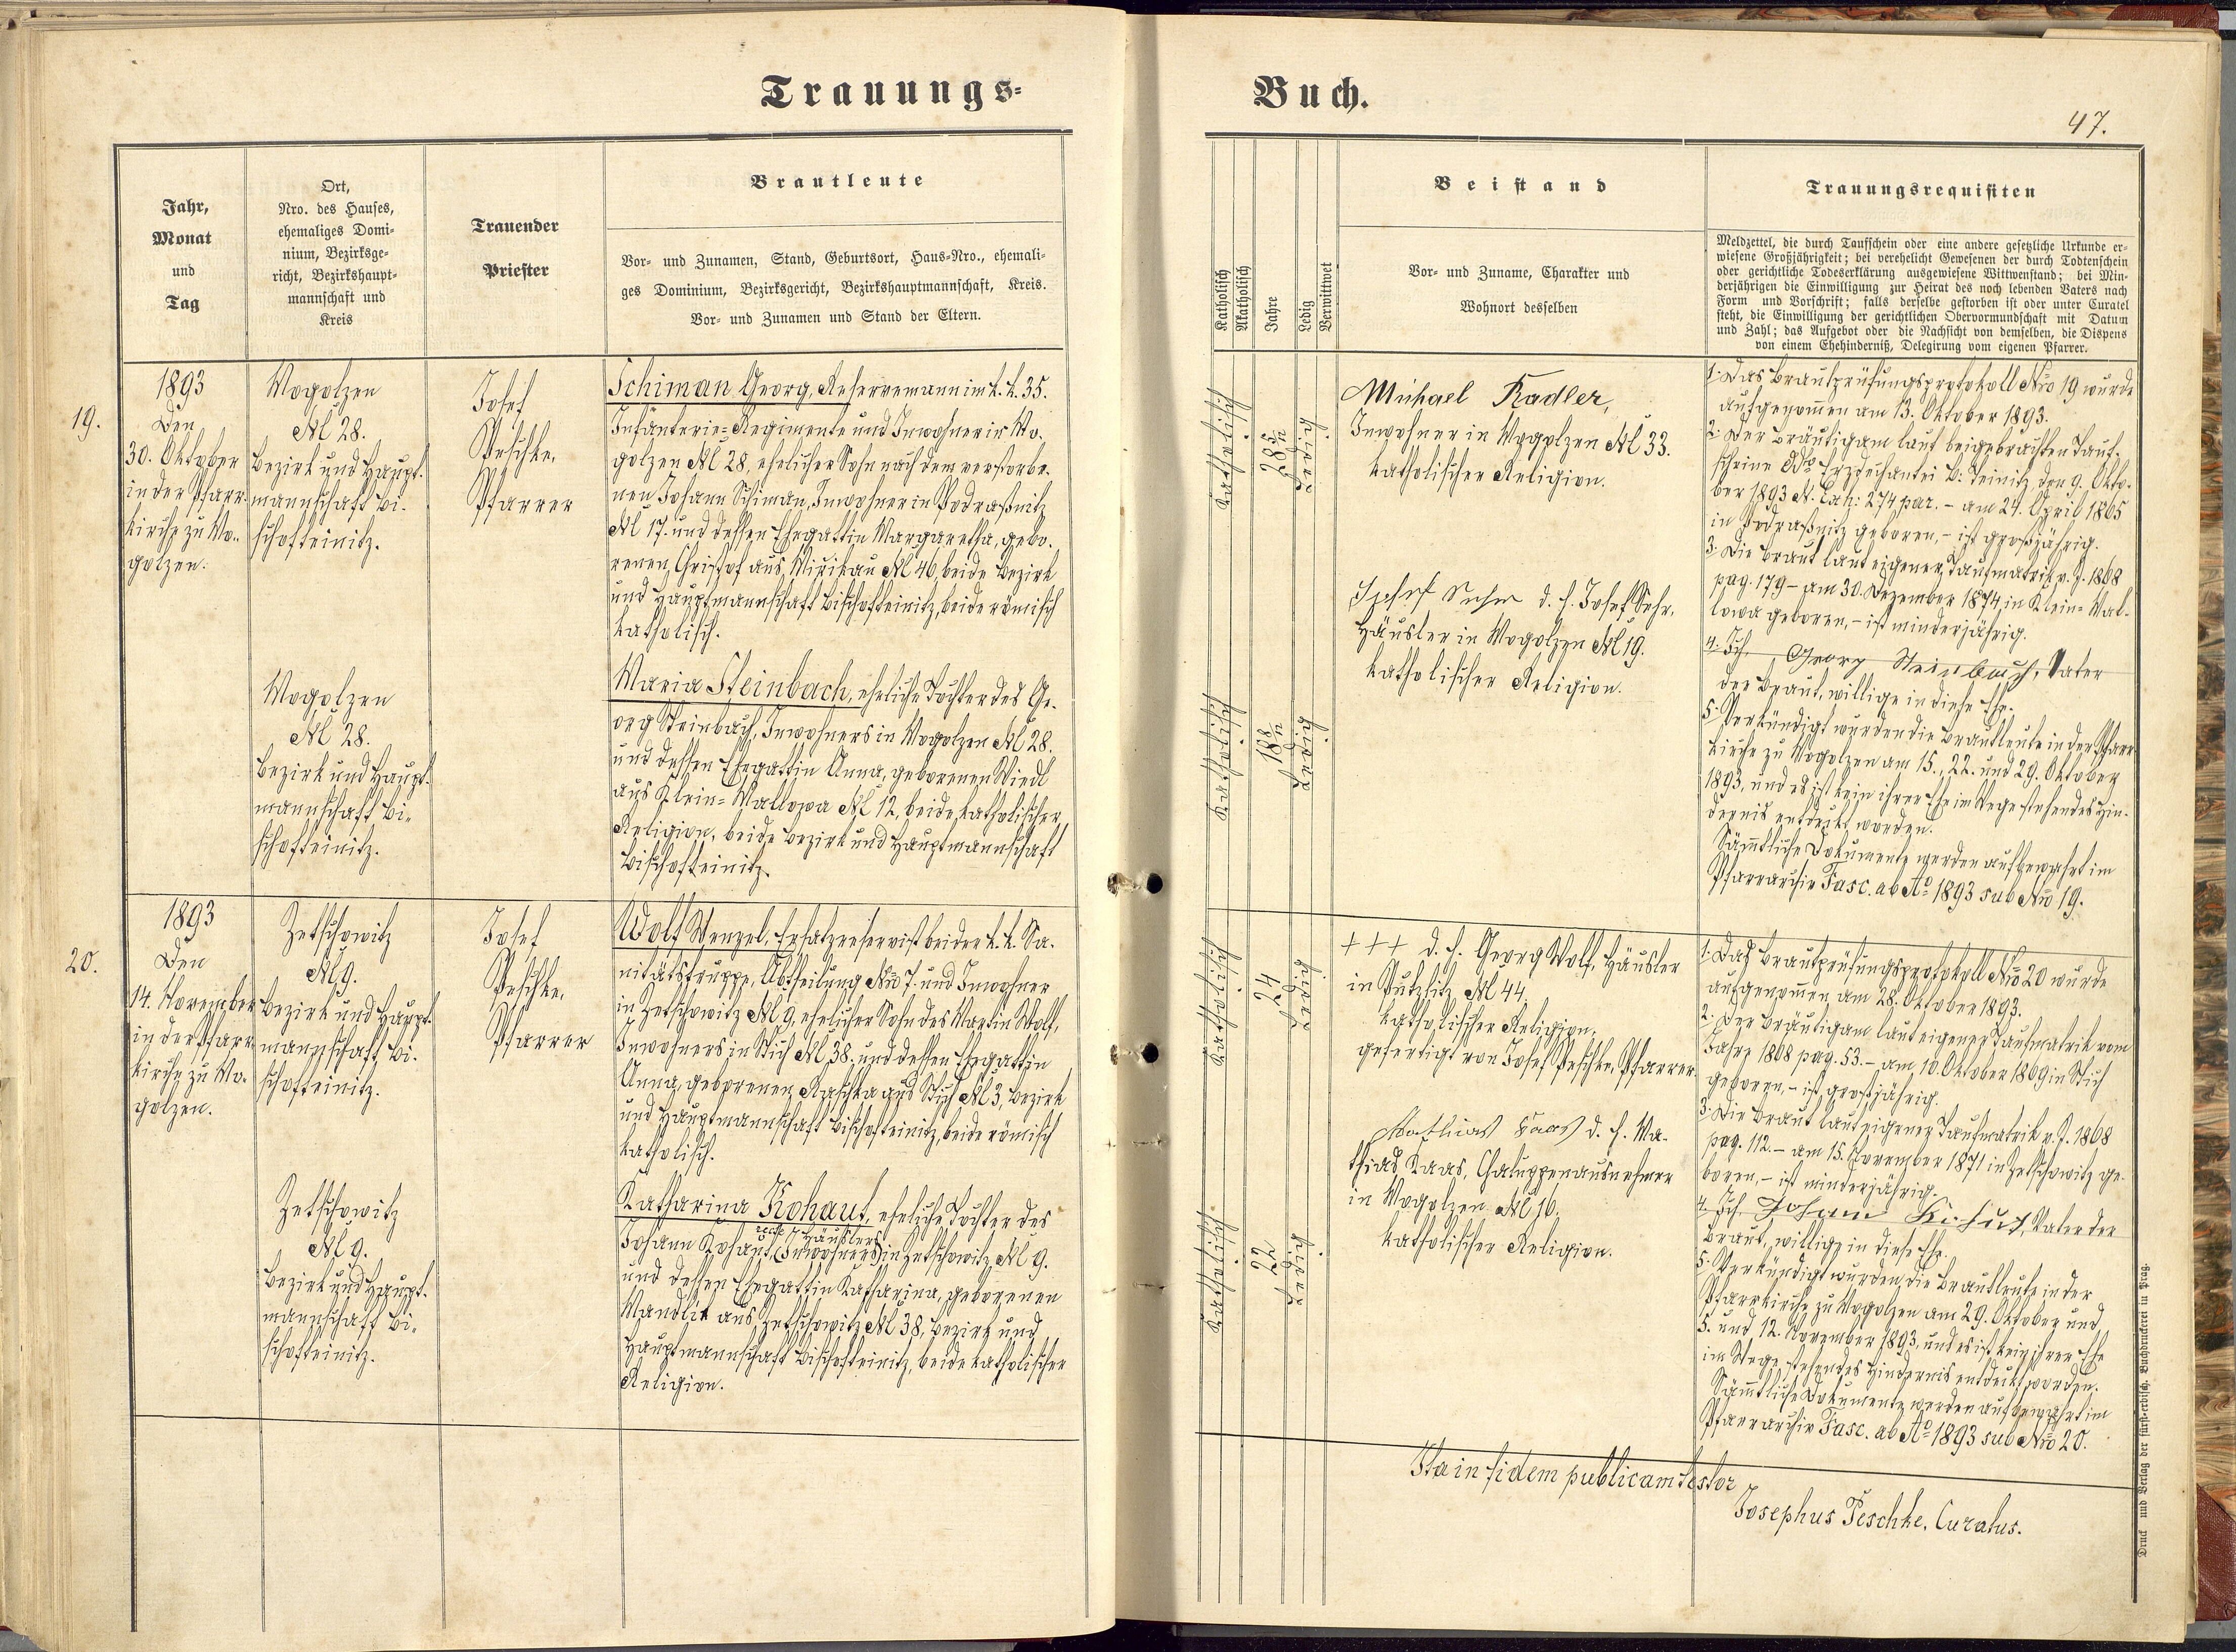 Trauungs-
Buch.
47.
Jahr,
Monat
und
Tag
Ort,
Nro. des Hauses,
ehemaliges Domi-
nium, Bezirksge-
richt, Bezirkshaupt-
mannschaft und
Kreis
Trauender
Priester
Brautleute
Vor- und Zunamen, Stand, Geburtsort, Haus-Nro., ehemali-
ges Dominium, Bezirksgericht, Bezirkshauptmannschaft, Kreis.
Vor- und Zunamen und Stand der Eltern.
Katholisch
Akatholisch
Jahre
Ledig
Verwittwet
Beistand
Vor- und Zuname, Charakter und
Wohnort desselben
Trauungsrequisiten
Meldzettel, die durch Taufschein oder eine andere gesetzliche Urkunde er-
wiesene Großjährigkeit; bei verehelicht Gewesenen der durch Todtenschein
oder gerichtliche Todeserklärung ausgewiesene Wittwenstand; bei Min-
derjährigen die Einwilligung zur Heirat des noch lebenden Vaters nach
Form und Vorschrift; falls derselbe gestorben ist oder unter Curatel
steht, die Einwilligung der gerichtlichen Obervormundschaft mit Datum
und Zahl; das Aufgebot oder die Nachsicht von demselben, die Dispens
von einem Ehehinderniß, Delegirung vom eigenen Pfarrer.
19.
1893
Den
30. Oktober
in der Pfarr-
kirche zu Wo-
golzen.
Wogolzen
№ 28.
Bezirk und Haupt-
mannschaft Bi-
schofteinitz.
Josef
Peschke,
Pfarrer
Schiman Georg, Reservemann im k. k. 35.
Infanterie-Regimente und Inwohner in Wo-
golzen № 28, ehelicher Sohn nach dem verstorbe-
nen Johann Schiman, Inwohner in Podraßnitz
№ 17. und dessen Ehegattin Margaretha, gebo-
renen Christof aus Mirikau № 46, beide Bezirk
und Hauptmannschaft Bischofteinitz, beide römisch
katholisch.
Katholisch
28 5/12
Ledig
Michael Kadler,
Inwohner in Wogolzen № 33.
katholischer Religion.
Josef Sehr d. h. Josef Sehr,
Häusler in Wogolzen № 19.
katholischer Religion.
1. Das Brautprüfungsprotokoll Nro 19 wurde
aufgenommen am 13. Oktober 1893.
2. Der Bräutigam laut beigebrachten Tauf-
scheine Erzdechantei B. Teinitz den 9. Okto-
ber 1893 N. Exh: 274 par. - am 24. April 1865
in Podraßnitz geboren, - ist großjährig.
3. Die Braut laut eigener Taufmatrik v. J. 1868
pag. 179 - am 30. Dezember 1874 in Klein-Mal-
lowa geboren, - ist minderjährig.
4. Ich, Georg Steinbach, Vater
der Braut, willige in diese Ehe.
5. Verkündigt wurden die Brautleute in der Pfarr-
kirche zu Wogolzen am 15., 22. und 29. Oktober
1893, und es ist kein ihrer Ehe im Wege stehendes Hin-
dernis entdeckt worden.
Sämmtliche Dokumente werden aufbewahrt im
Pfarrarchiv Fasc. ab Ao 1893 sub Nro 19.
Wogolzen
№ 28.
Bezirk und Haupt-
mannschaft Bi-
schofteinitz.
Maria Steinbach, eheliche Tochter des Ge-
org Steinbach, Inwohners in Wogolzen № 28.
und dessen Ehegattin Anna, geborenen Riedl
aus Klein-Mallowa № 12, beide katholischer
Religion, beide Bezirk und Hauptmannschaft
Bischofteinitz.
Katholisch
18 8/12
Ledig
20.
1893
Den
14. November
in der Pfarr-
kirche zu Wo-
golzen.
Zetschowitz
№ 9.
Bezirk und Haupt-
mannschaft Bi-
schofteinitz.
Josef
Peschke,
Pfarrer
Wolf Wenzel, Ersatzreservist bei der k. k. Sa-
nitätstruppe, Abtheilung Nro 7. und Inwohner
in Zetschowitz № 9, ehelicher Sohn des Martin Wolf,
Inwohners in Stich № 38. und dessen Ehegattin
Anna, geborenen Raschka aus Stich № 3, Bezirk
und Hauptmannschaft Bischofteinitz, beide römisch
katholisch.
Katholisch
24
Ledig
+++ d. h. Georg Wolf, Häusler
in Putzlitz № 44.
katholischer Religion,
gefertigt von Josef Peschke, Pfarrer.
Mathias Kaas d. h. Ma-
thias Kaas, Chaluppenausnehmer
in Wogolzen № 16.
katholischer Religion.
1. Das Brautprüfungsprotokoll Nro 20 wurde
aufgenommen am 28. Oktober 1893.
2. Der Bräutigam laut eigener Taufmatrik vom
Jahre 1868 pag. 53. - am 10. Oktober 1869 in Stich
geboren, - ist großjährig.
3. Die Braut laut eigener Taufmatrik v. J. 1868
pag. 112. - am 15. November 1871 in Zetschowitz ge-
boren, - ist minderjährig.
4. Ich, Johann Kohut, Vater der
Braut, willige in diese Ehe.
5. Verkündigt wurden die Brautleute in der
Pfarrkirche zu Wogolzen am 29. Oktober und
5. und 12. November 1893, und es ist kein ihrer Ehe
im Wege stehendes Hindernis entdeckt worden.
Sämmtliche Dokumente werden aufbewahrt im
Pfarrarchiv Fasc. ab Ao 1893 sub Nro 20.
Zetschowitz
№ 9.
Bezirk und Haupt-
mannschaft Bi-
schofteinitz.
Katharina Kohaut, eheliche Tochter des
recte Häuslers
Johann Kohaut (Inwohners) in Zetschowitz № 9.
und dessen Ehegattin Katharina, geborenen
Mandlik aus Zetschowitz № 38, Bezirk und
Hauptmannschaft Bischofteinitz, beide katholischer
Religion.
Katholisch
22
Ledig
Ita in fidem publicam testor
Josephus Peschke, Curatus.
Druck und Verlag der fürst-erzbisch. Buchdruckerei in Prag.